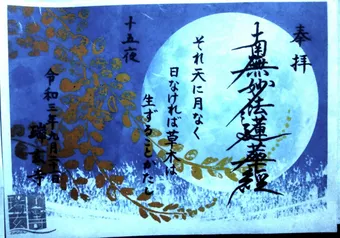 奉拝
南無妙法蓮華経
それ天に月なく
日なければ草木は
生ずることかたし
十五夜
令和三年九月二十一日